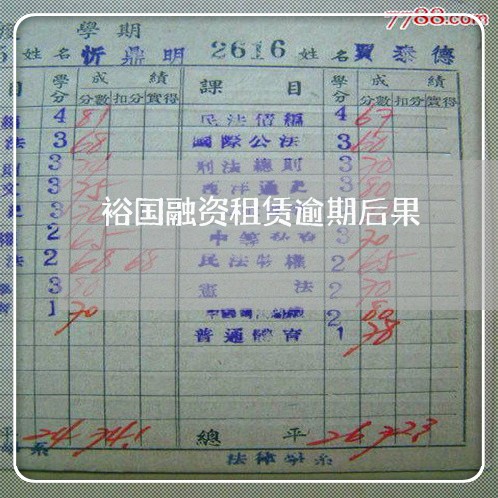 7788.com
學期
姓名 忻鼎明 2616 姓名 賈泰德
目 學分 成績 課目 學分 成績
分數 扣分 實得 分數 扣分 實得
4 81 民法債編 4 67
法 3 68 國際公法 3 60
3 刑法總則 3 70
3 75 西洋通史 3 80
裕国融资租赁逾期后果
2 65 3 70
法 2 68 68 民法物權 2 65
3 80 憲法 2 70
1 70 2 80
普通體育 1 78
平 24 74.1 總平 26 72.3
系 法律學系